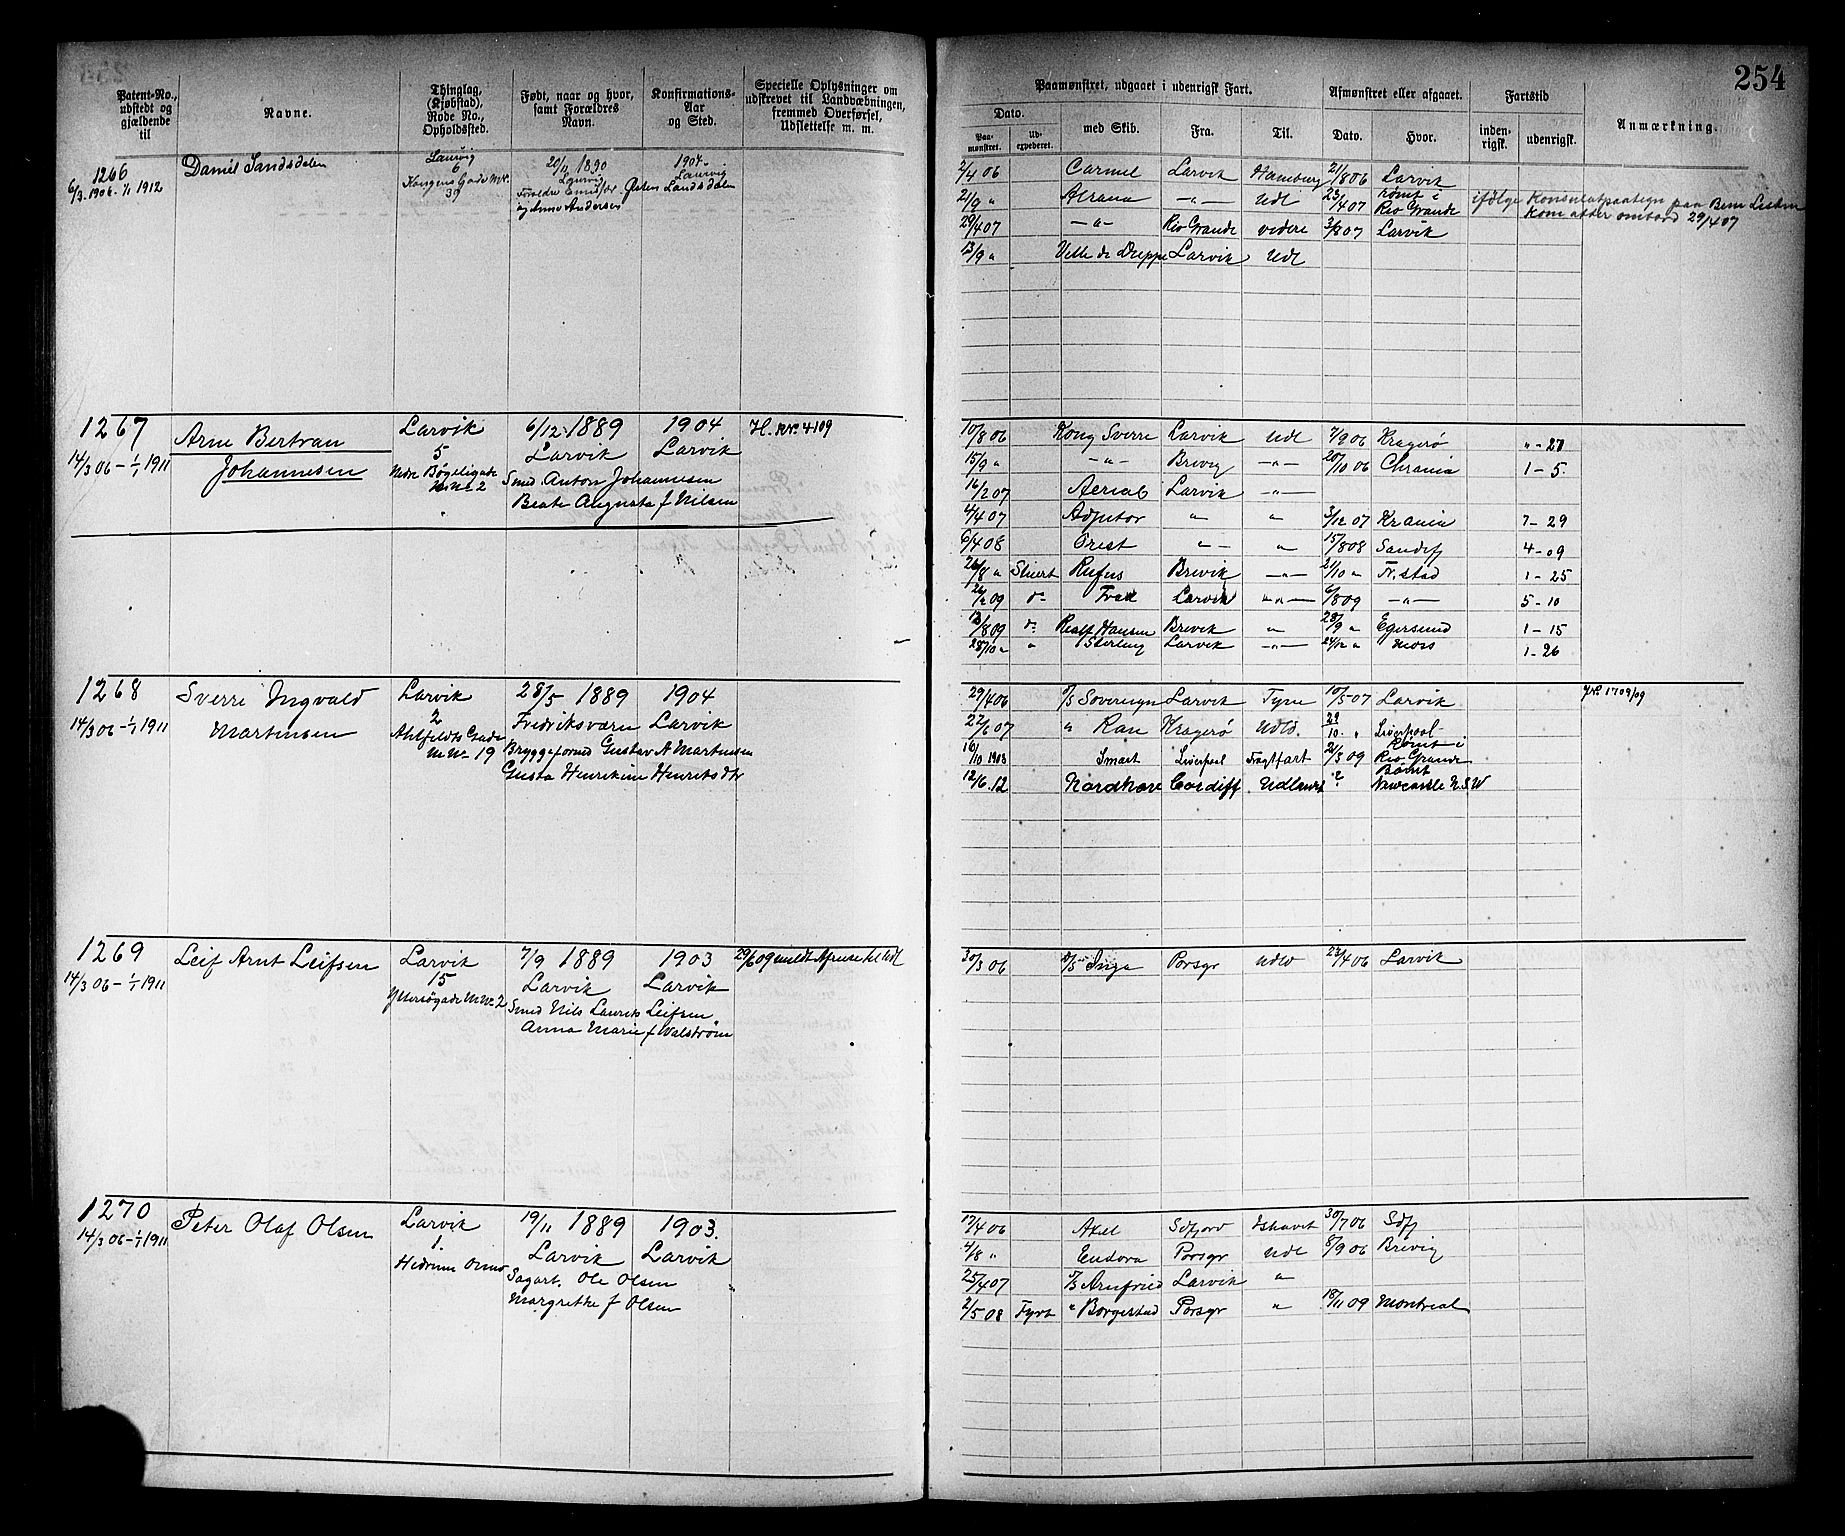 254
Patent-No., udstedt og gjældende til
Navne.
Thinglag, (Kjøbstad), Rode No., Opholdssted.
Født, naar og hvor, samt Forældres Navn.
Konfirmations-Aar og Sted.
Specielle Oplysninger om udskrevet til Landvæbningen, fremmed Overførsel, Udslettelse m. m.
Paamønstret, udgaaet i udenrigsk Fart.
Dato.
Paamønstret.
Udexpederet.
med Skib.
Fra.
Til.
Afmønstret eller afgaaet.
Dato.
Hvor.
Fartstid
indenrigsk.
udenrigsk.
Anmærkning.
1266
6/3 1906 - 1/1 1912
Daniel Sandsdalen
Laurvig
6
Kongens Gade M.Nr. 39
20/11 1890
Laurvig
Forældre Emissær Østen Sandsdalen
og Anne Andersen
1904
Laurvig
2/4 06 Carmel Larvik Hamburg 21/8 06 Larvik
21/9 " Atrana -"- Udl 23/4 07 rømt i Rio Grande ifølge Konsulatpaategn paa Bem Listen
kom atter ombord 29/4 07
29/4 07 -"- Rio Grande videre 3/8 07 Larvik
13/9 " Ville de Dieppe Larvik Udl
1267
14/3 06 - 1/1 1911
Arne Bertran
Johannesen
Larvik
5
Nedre Bøgeligade
M.Nr. 2
6/12 1889
Larvik
Smed Anton Johannesen
Beate Augusta f Nilsen
1904
Larvik
H. Nr. 4109
10/8 06 Kong Sverre Larvik Udl 7/9 06 Kragerø "-27
15/9 " -"- Brevig -"- 20/10 06 Chrania 1-5
16/2 07 Aerial Larvik -"-
4/4 07 Adjutor " " 3/12 07 Krania 7-29
6/4 08 Orest -"- " 15/8 08 Sandefj 4-09
26/8 " Stuert Rufus Brevik -"- 21/10 " Fr.stad 1-25
26/2 09 do Larvik -"- 6/8 09 -"- 5-10
13/8 09 do Realf Hansen Brevik " 28/9 " Egersund 1-15
28/10 " " Sterling Larvik -"- 24/12 " Moss 1-26
1268
14/3 06 - 1/1 1911
Sverre Ingvald
Martinsen
Larvik
2
Ahlfeldts Gade
M.Nr. 19
28/5 1889
Fredriksværn
Bryggeformd Gustav A Martinsen
Gusta Henrikine Henriksdtr
1904
Larvik
29/4 06 S/S Sovereign Larvik Tyne 10/5 07 Larvik
22/6 07 " Ran Kragerø Udld. 29/10 " Liverpool
10 1903 Smart Liverpool Fragtfart 21/3 09 Rømt i Rio Grande
12/6 12 Nordhare Cardiff Udlandet ? Rømt Newcastle N.S.W
JNr. 1709/09
1269
14/3 06 - 1/1 1911
Leif Arnt Leifsen
Larvik
15
Yttersøgade M.Nr. 2
7/9 1889
Larvik
Smed Nils Laurits Leifsen
Anna Marie f Walstrøm
1903
Larvik
29/6 09 meldt Afreise til Udl
30/3 06 S/S Inga Porsgr Udld 27/4 06 Larvik
1270
14/3 06 - 1/1 1911
Peter Olaf Olsen
Larvik
1.
19/11 1889
Larvik
Sagarb. Ole Olsen
Margrethe f Olsen
1903.
Larvik
17/4 06 Axel Sdfjord Ishavet 30/7 06 Sdfj
4/8 " Eudora Porsgr Udl 8/9 06 Brevig
25/4 07 S/S Arnfried Larvik "
2/5 08 Fyrb " Borgestad Porsgr " 18/11 09 Montreal